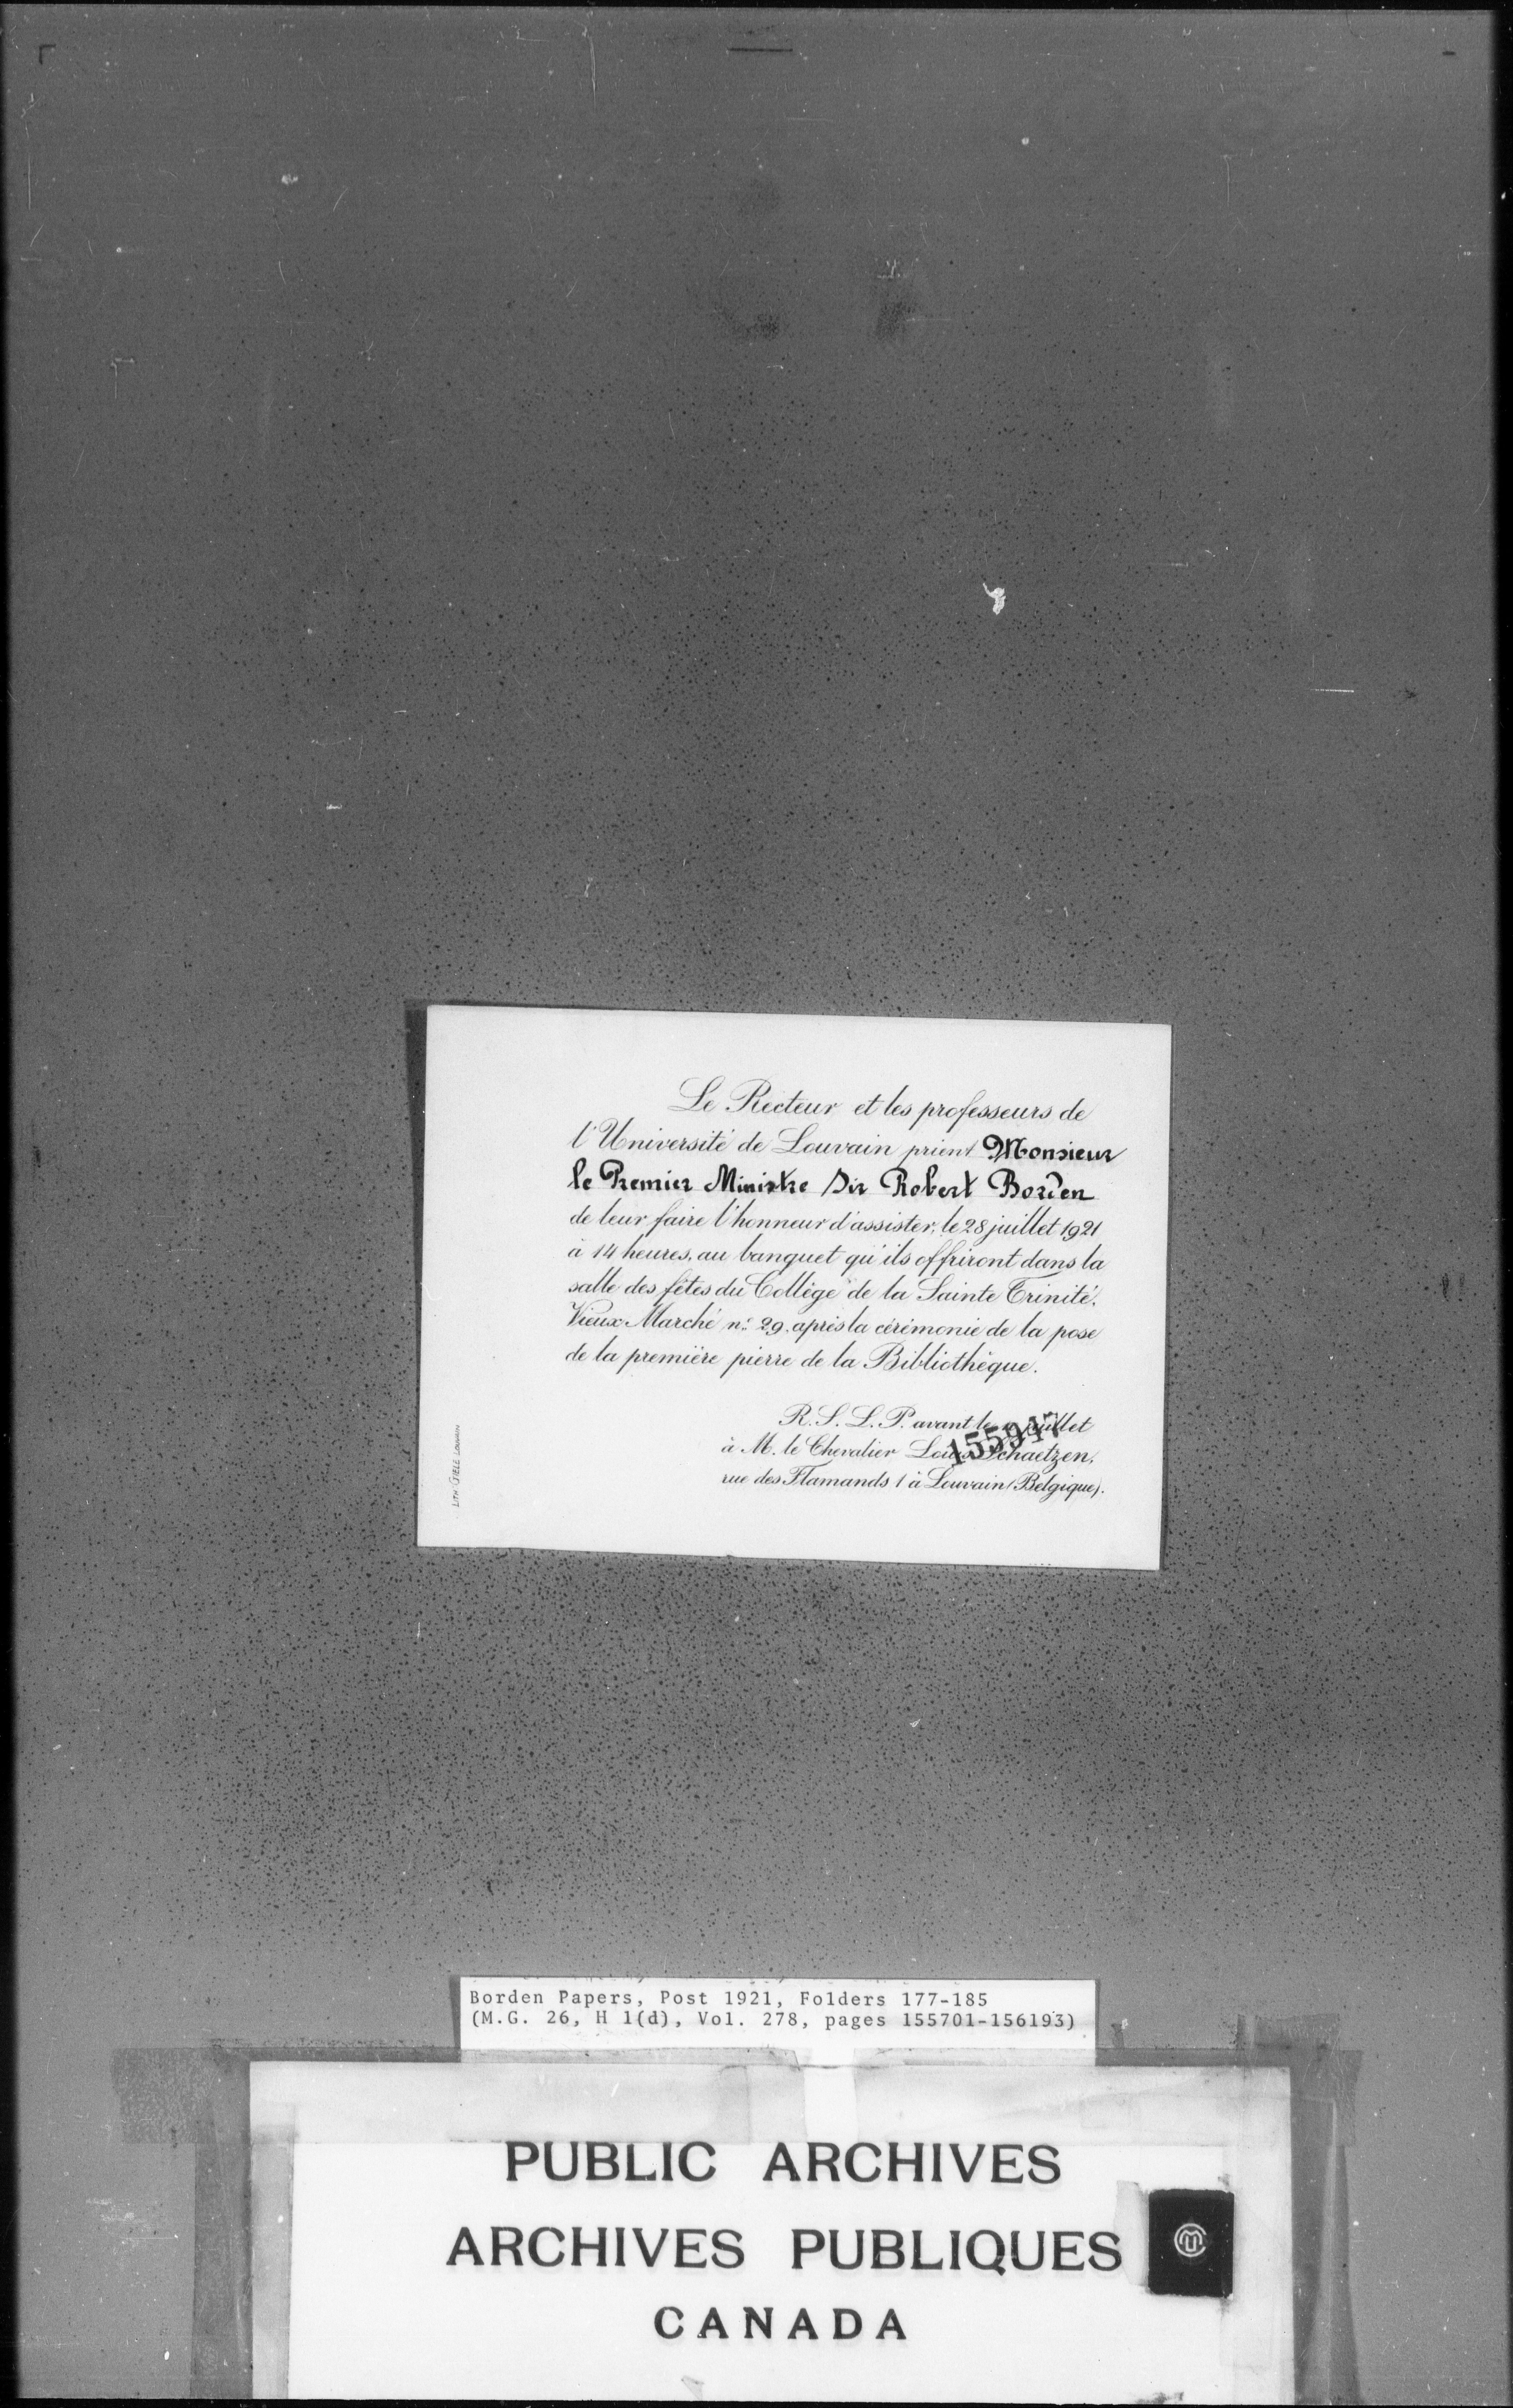 Le Recteur et les professeurs de
l'Université de Louvain prient Monsieur
le Premier Ministre Sir Robert Borden
de leur faire l'honneur d'assister, le 28 juillet 1921
à 14 heures, au banquet qu'ils offriront dans la
salle des fêtes du Collège de la Sainte Trinité,
Vieux Marché nº 29, après la cérémonie de la pose
de la première pierre de la Bibliothèque.
R. S. L. P. avant le juillet
à M. le Chevalier Louis Schaetzen,
rue des Flamands 1 à Louvain (Belgique).
155947
LITH GIELE LOUVAIN
Borden Papers, Post 1921, Folders 177-185
(M.G. 26, H 1(d), Vol. 278, pages 155701-156193)
PUBLIC ARCHIVES
ARCHIVES PUBLIQUES
CANADA